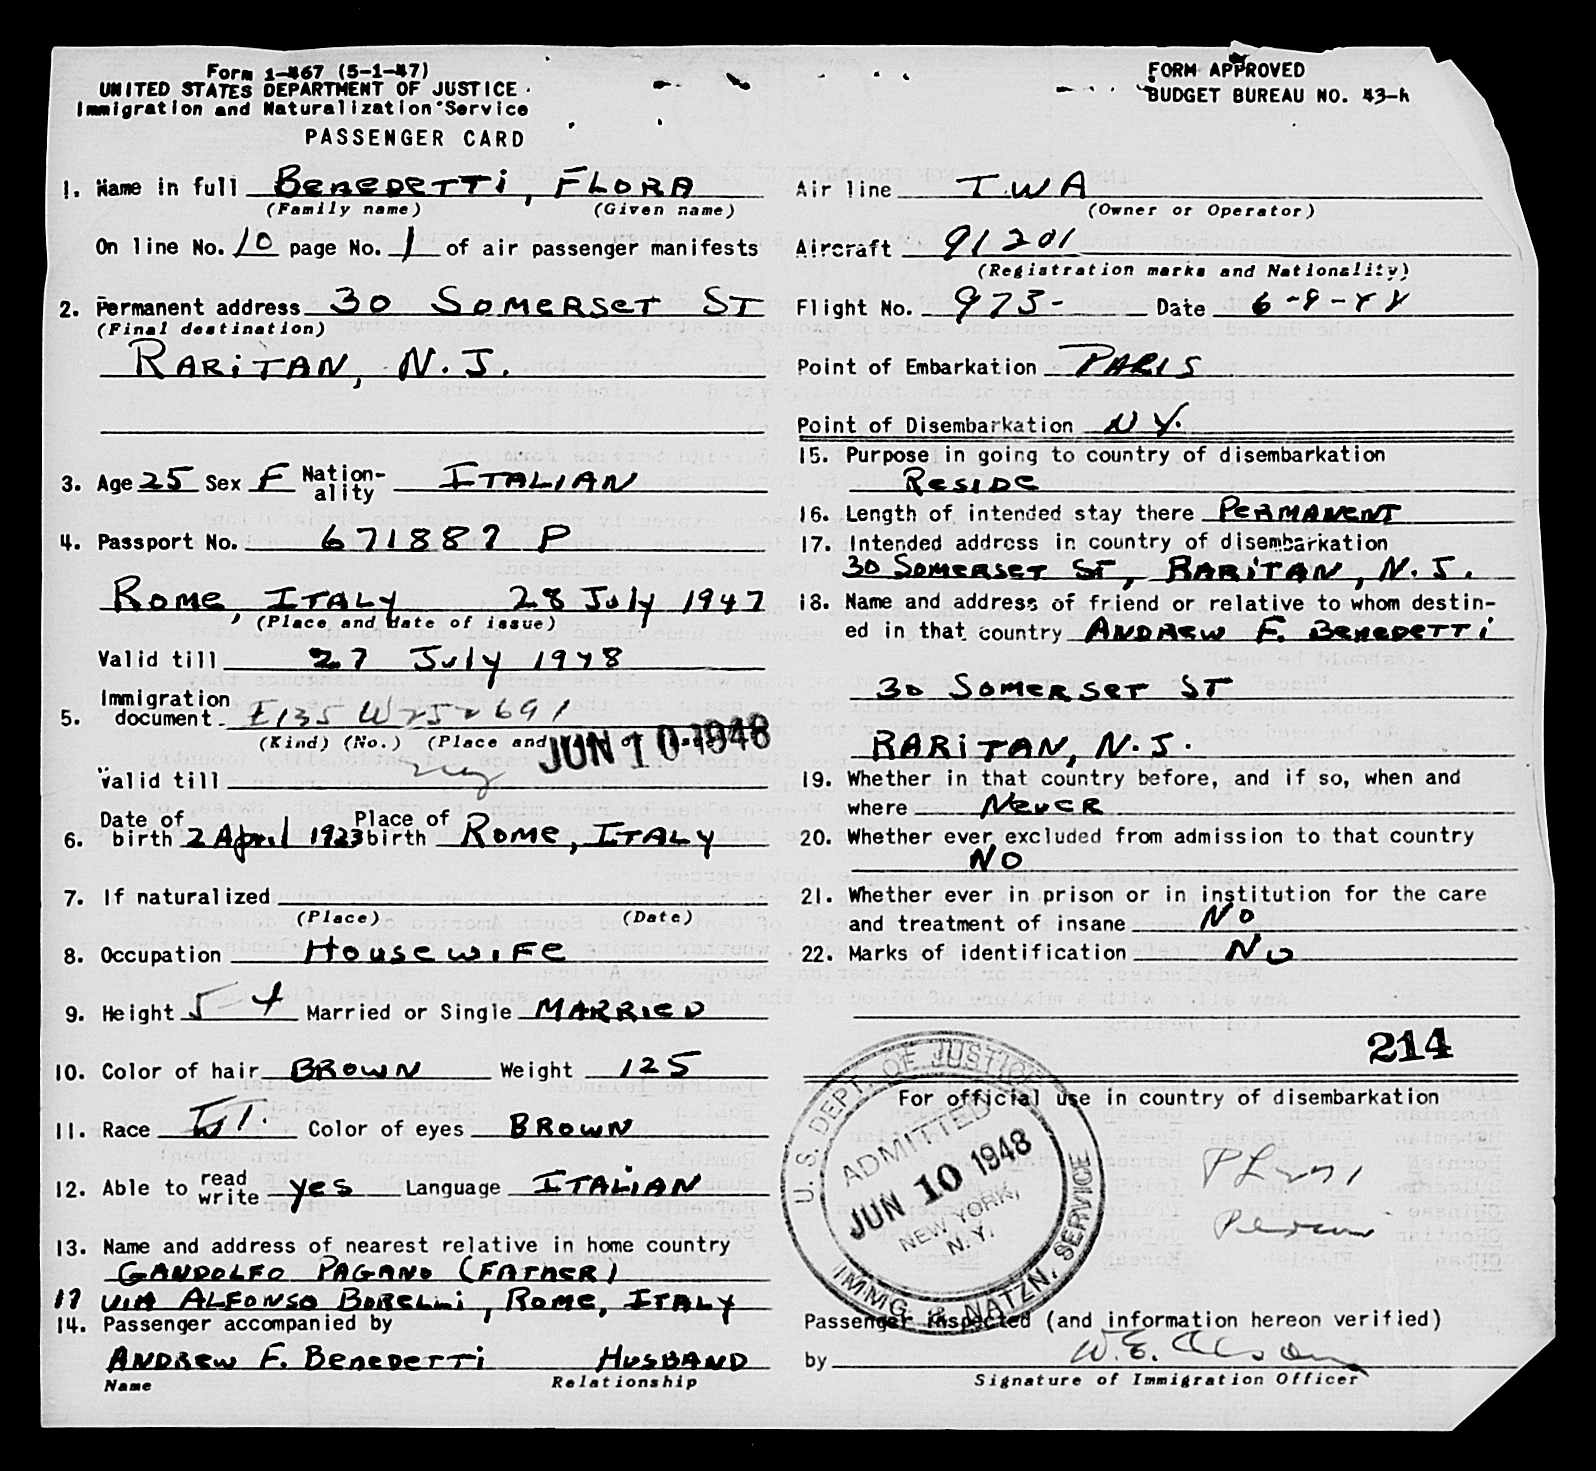 Form 1-467 (5-1-47)
UNITED STATES DEPARTMENT OF JUSTICE
Immigration and Naturalization Service
PASSENGER CARD
FORM APPROVED
BUDGET BUREAU NO. 43-
1. Name in full BENEDETTI, FLORA
(Family name) (Given name)
On line No. 10 page No. 1 of air passenger manifests
2. Permanent address 30 SOMERSET ST
(Final destination)
RARITAN, N.J.
3. Age 25 Sex F Nation-ality ITALIAN
4. Passport No. 671887 P
ROME, ITALY 28 July 1947
(Place and date of issue)
Valid till 27 July 1948
5. Immigration document
(Kind) (No.) (Place and
JUN 10 1948
Valid till
6. Date of birth 2 April 1923 Place of birth ROME, ITALY
7. If naturalized
(Place) (Date)
8. Occupation HOUSEWIFE
9. Height 5-4 Married or Single MARRIED
10. Color of hair BROWN Weight 125
11. Race Color of eyes BROWN
12. Able to read write yes Language ITALIAN
13. Name and address of nearest relative in home country
GANDOLFO PAGANO (FATHER)
17 VIA ALFONSO BORELLI, ROME, ITALY
14. Passenger accompanied by
ANDREW F. BENEDETTI HUSBAND
Name Relationship
Air line T.W.A
(Owner or Operator)
Aircraft 91201
(Registration marks and Nationality)
Flight No. 973- Date 6-9-48
Point of Embarkation PARIS
Point of Disembarkation N.Y.
15. Purpose in going to country of disembarkation
RESIDE
16. Length of intended stay there PERMANENT
17. Intended address in country of disembarkation
30 SOMERSET ST, RARITAN, N.J.
18. Name and address of friend or relative to whom destin-
ed in that country ANDREW F. BENEDETTI
30 SOMERSET ST
RARITAN, N.J.
19. Whether in that country before, and if so, when and
where NEVER
20. Whether ever excluded from admission to that country
NO
21. Whether ever in prison or in institution for the care
and treatment of insane NO
22. Marks of identification NO
214
For official use in country of disembarkation
U.S. DEPT. OF JUSTICE
ADMITTED
JUN 10 1948
NEW YORK,
N.Y.
IMMG. & NATZN. SERVICE
Passenger inspected (and information hereon verified)
by
Signature of Immigration Officer